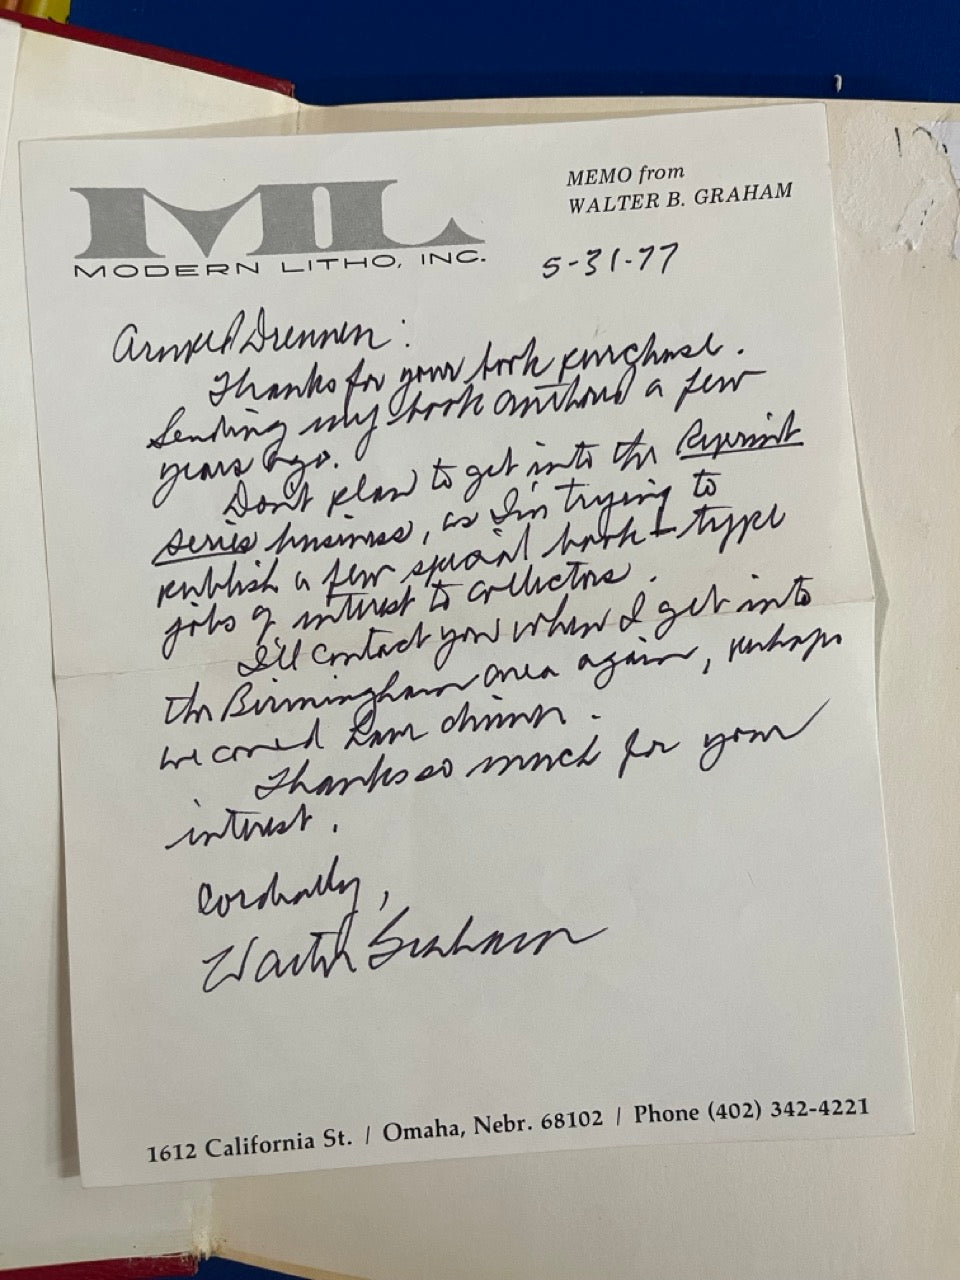 ML
MODERN LITHO, INC.
MEMO from
WALTER B. GRAHAM
5-31-77
Arnold Drennen:
Thanks for your book purchase.
Sending my book authored a few
years ago.
Don't plan to get into the Reprint
series business, as I'm trying to
publish a few special book-type
jobs of interest to collectors.
I'll contact you when I get into
the Birmingham area again, perhaps
we could have dinner.
Thanks so much for your
interest.
Cordially,
Walter Graham
1612 California St. / Omaha, Nebr. 68102 / Phone (402) 342-4221